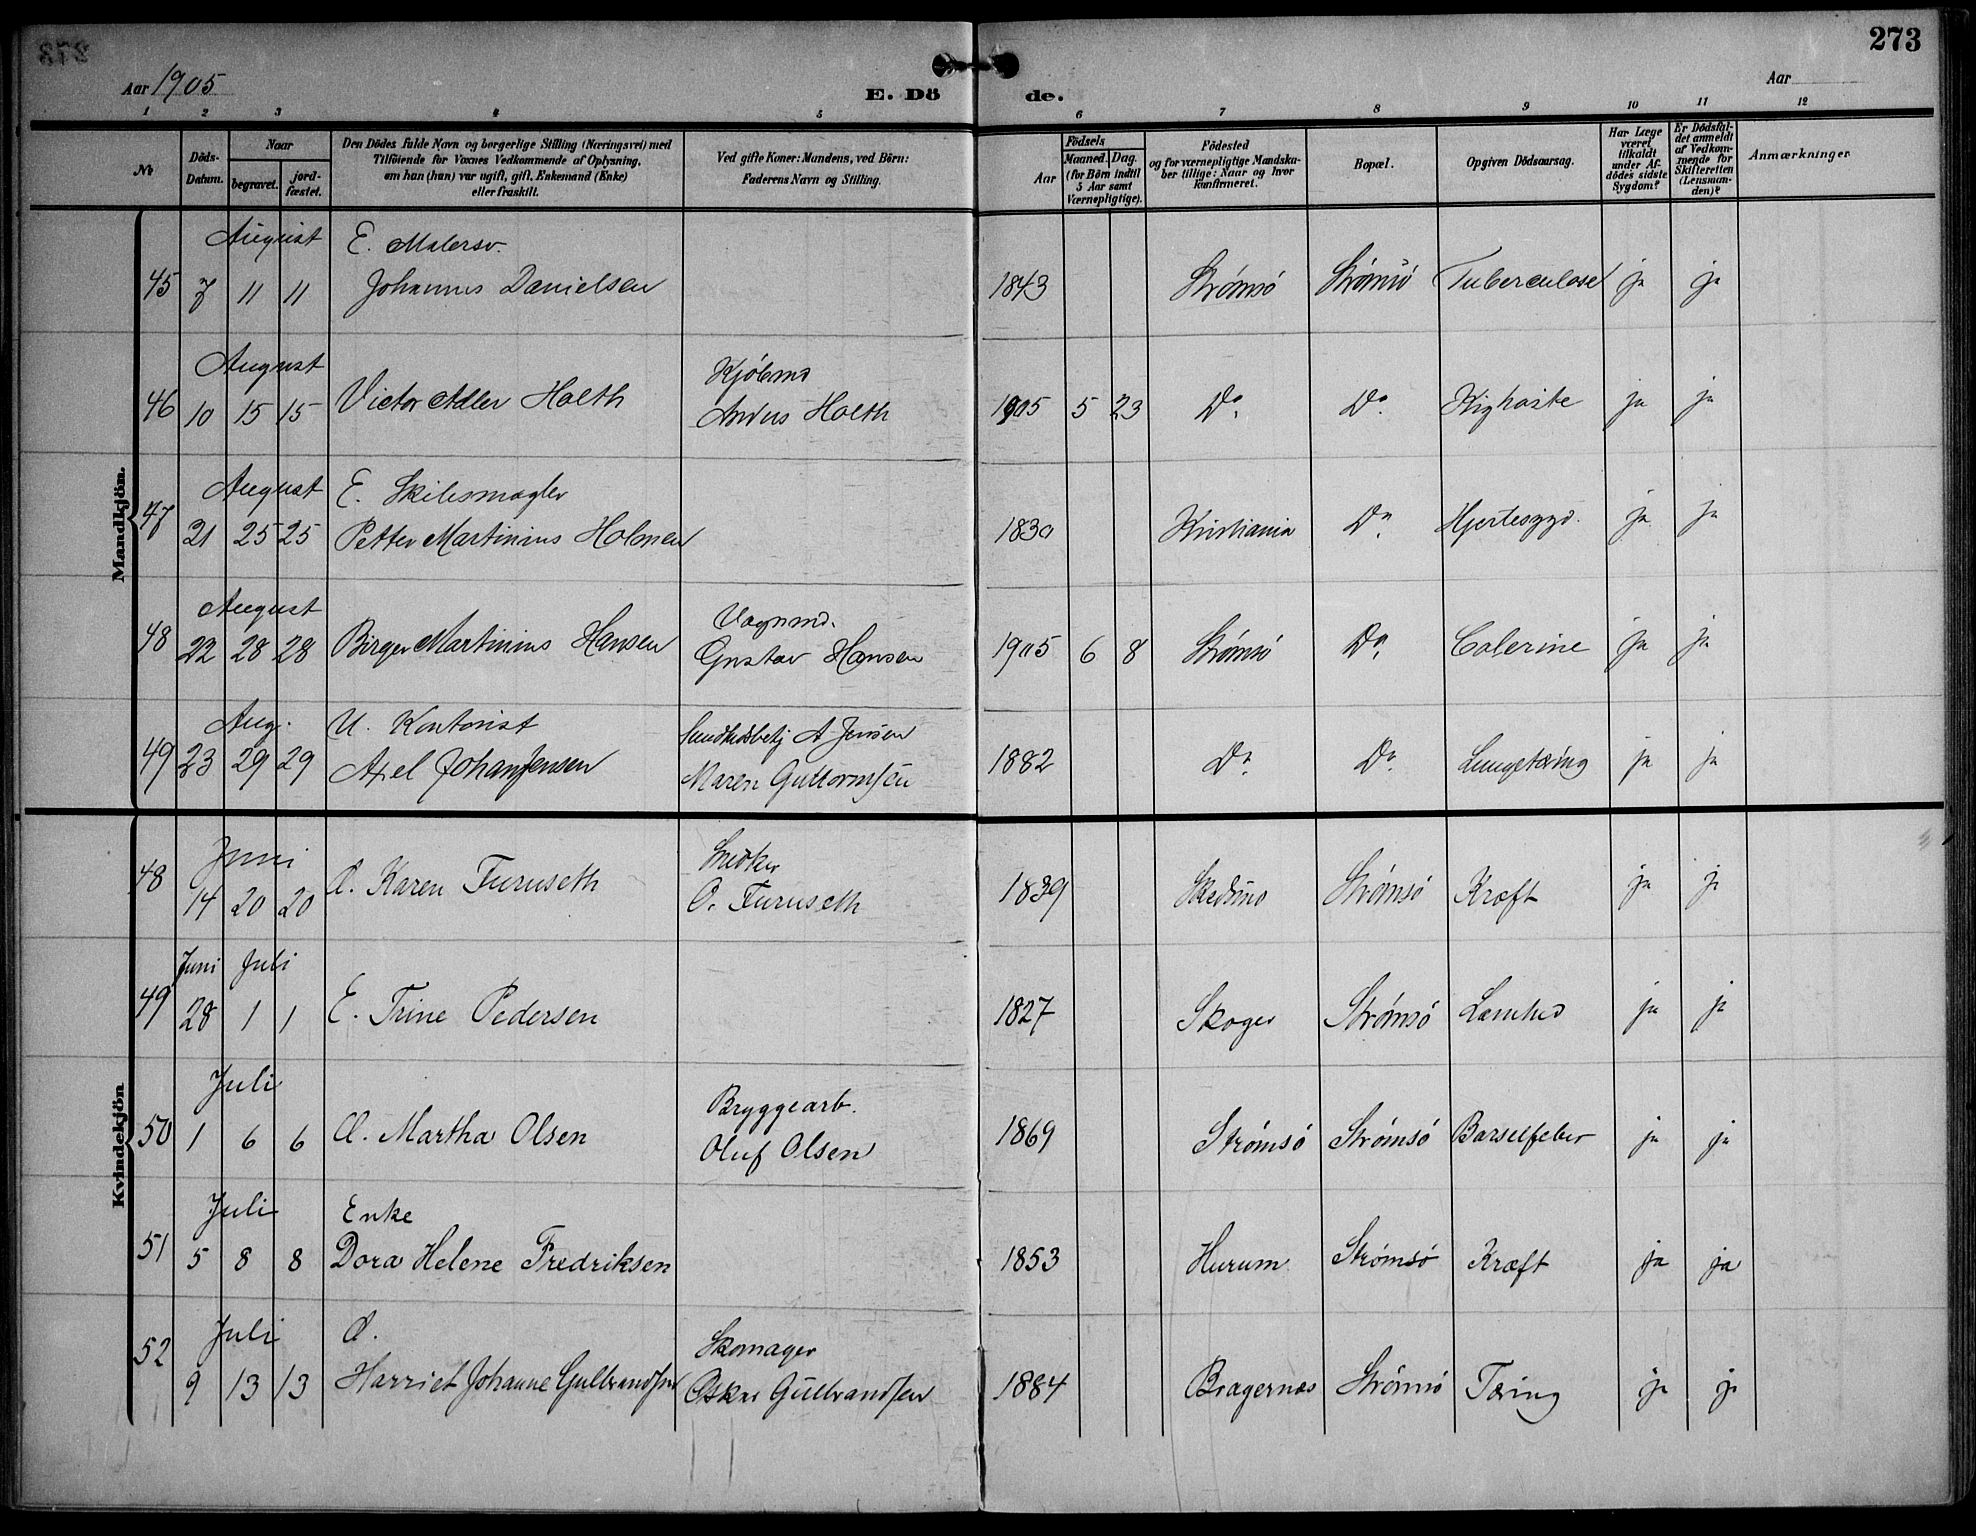 273
Aar 1905
E. Dö de.
Aar
1 2 3 4 5 6 7 8 9 10 11 12
No
Döds-Datum.
Naar
begravet.
jord-fæstet.
Den Dödes fulde Navn og borgerlige Stilling (Næringsvei) med
Tilföiende for Voxnes Vedkommende af Oplysning,
om han (hun) var ugift, gift, Enkemand (Enke)
eller fraskilt.
Ved gifte Koner: Mandens, ved Börn:
Faderens Navn og Stilling.
Födsels
Aar
Maaned. Dag.
(for Börn indtil
5 Aar samt
Værnepligtige).
Födested
og for værnepligtige Mandska-
ber tillige: Naar og hvor
konfirmeret.
Bopæl.
Opgiven Dödsaarsag.
Har Læge
været
tilkaldt
under Af-
dödes sidste
Sygdom?
Er Dödsfal-
det anmeldt
af Vedkom-
mende for
Skifteretten
(Lensman-
den)?
Anmærkninger
Mandkjön.
August E. Malersv.
45 7 11 11 Johannes Danielsen 1843 Strømsö Strømsö Tuberculose ja ja
August Kjöbmd
46 10 15 15 Victor Adler Holth Anders Holth 1905 5 23 Do. Do. Kighoste ja ja
August E. Skibsmægler
47 21 25 25 Petter Martinius Holmen 1830 Kristiania Do. Hjertesygd. ja ja
August Vognmd.
48 22 28 28 Birger Martinius Hansen Gustav Hansen 1905 6 8 Strømsö Do. Colerine ja ja
Aug. U. Kontorist A Jensen
49 23 29 29 Axel Johan Jensen Maren Guttormsen 1882 Do. Do. Lungetæring ja ja
Kvindekjön
Juni Snedker
48 14 20 20 G. Karen Furuseth O. Furuseth 1839 Skedsmo Strømsö Kræft ja ja
Juni Juli
49 28 1 1 E. Trine Pedersen 1827 Skoger Strømsö Lamhed ja ja
Juli Bryggearb.
50 1 6 6 G. Martha Olsen Oluf Olsen 1869 Strømsö Strømsö Barselfeber ja ja
Juli Enke
51 5 8 8 Dora Helene Fredriksen 1853 Hurum Strømsö Kræft ja ja
Juli G. Skomager
52 9 13 13 Harriet Johanne Gulbrandsen Oskar Gulbrandsen 1884 Bragernæs Strømsö Tæring ja ja